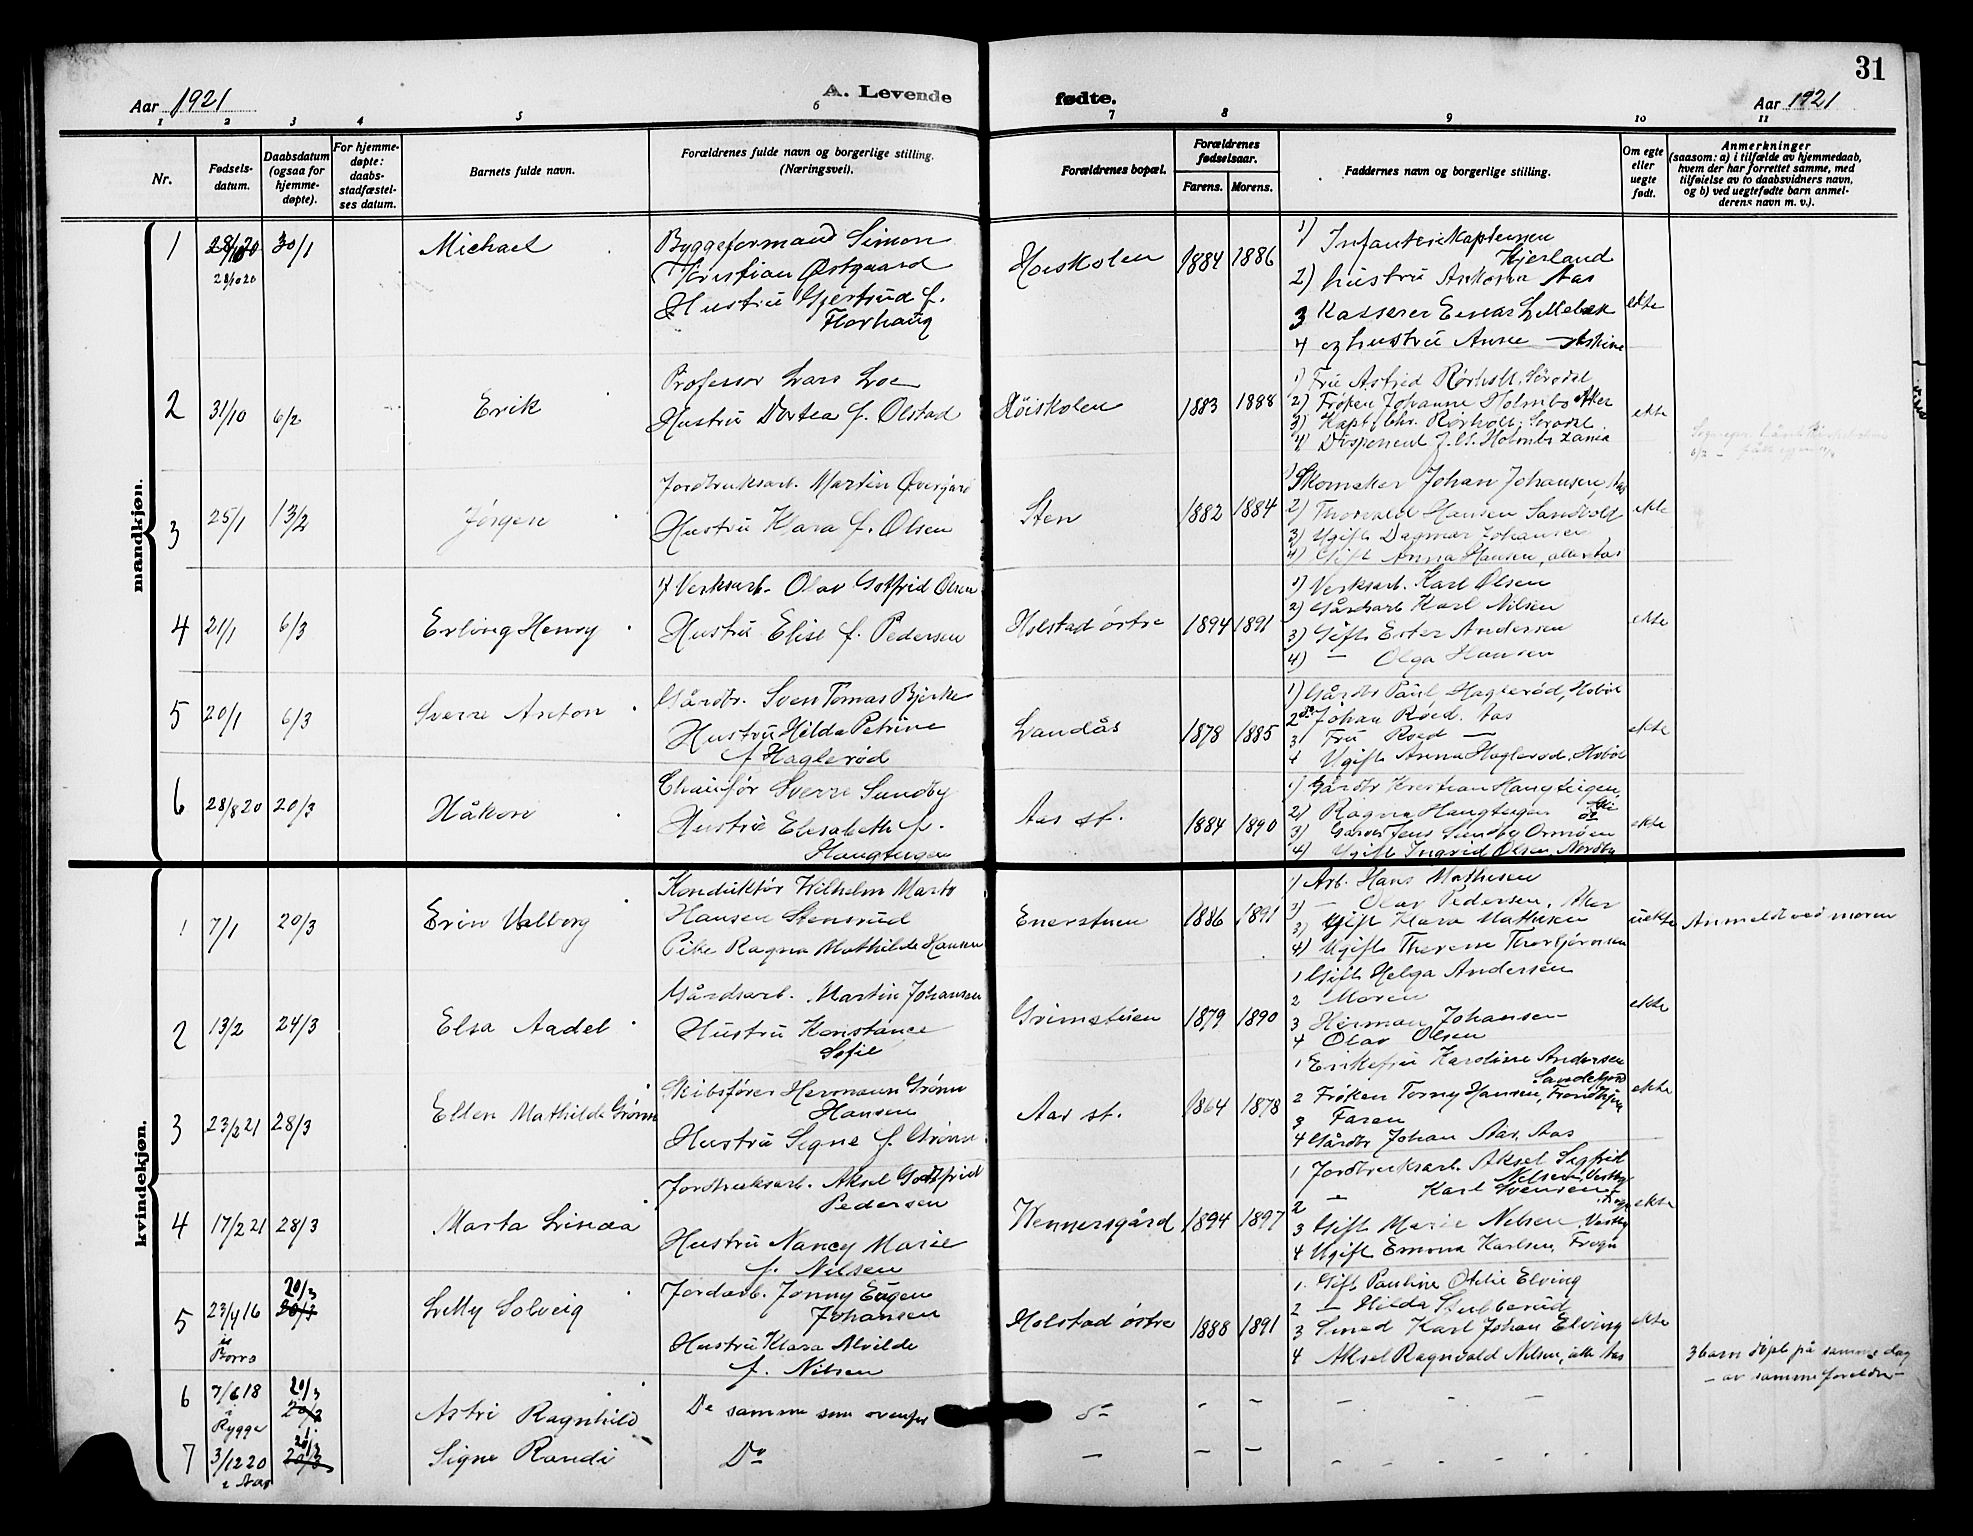 31
Aar 1921
A. Levende
fødte.
Aar 1921
1 2 3 4 5 6 7 8 9 10 11
Nr.
Fødsels-
datum.
Daabsdatum
(ogsaa for
hjemme-
døpte).
For hjemme-
døpte:
daabs-
stadfæstel-
ses datum.
Barnets fulde navn.
Forældrenes fulde navn og borgerlige stilling.
(Næringsvei).
Forældrenes bopæl.
Forældrenes
fødselsaar.
Farens. Morens.
Faddernes navn og borgerlige stilling.
Om egte
eller
uegte
født.
Anmerkninger
(saasom: a) i tilfælde av hjemmedaab,
hvem der har forrettet samme, med
tilføielse av to daabsvidners navn,
og b) ved uegtefødte barn anmel-
derens navn m. v.).
mandkjøn.
1 28/10 20 30/1 Michael
28/10 20
Byggeformand Simon
Kristian Østgaard
Hustru Gjertrud f.
Florhaug
Høiskolen 1884 1886
1) Infanterikapteinen
Kjerland
2) hustru Aas
3 Kasserer Lillebæk
4 og hustru Anne
ekte
2 31/10 6/2 Erik
Professor Lars
Hustru Dortea f. Olstad
Høiskolen 1883 1888
1) Fru Astrid Rørholt, Sørodal
2) Frøken Johanne Holmbo Aker
3) Kapt. Chr. Rørholt, Sørodal
4) Disponent Holmbo
ekte
3 25/1 13/2 Jørgen
Jordbruksarb. Martin Øvergård
Hustru Klara f. Olsen
Sten 1882 1884
1) Skomaker Johan Johansen, Aas
2) Thorvald Hansen Sandvold
3) Ugift Dagmar Johansen
4) Gift Anna Hansen, alle Aas
ekte
4 21/1 6/3 Erling Henry
Verksarb. Olav Gotfrid Olsen
Hustru Elise f. Pedersen
Holstad østre 1894 1891
1) Verksarb. Karl Olsen
2) Gårdsarb Karl Nilsen
3) Gift Ester Andersen
4) — Olga Hansen
ekte
5 20/1 6/3 Sverre Anton
Gårdbr. Sven Tomas Bjerke
Hustru Hilda Petrine
f. Haglerød
Landås 1878 1885
1) Gårdbr Paul Haglerød, Hobøl
2 do Johan Røed. Aas
3 Fru Røed —
4 Ugift Anna Haglerød, Hobøl
ekte
6 28/8 20 20/3 Håkon
Chaufør Sverre Sundby
Hustru Elisabeth f.
Haugteigen
Aas st. 1884 1890
1) Gårdbr Kristian Haugteigen,
2) Ragna Haugteigen
3) Jens Sundby Ormøen
4) Ugift Ingrid Olsen, Nordby
ekte
kvindekjøn.
1 7/1 20/3 Valborg
Konduktør Wilhelm
Hansen Stensrud
Pike Ragna Mathilde Hansen
Enerstuen 1886 1891
1) Arb. Hans Mathisen
2) — Olav Pedersen, Aker
3) Gift Klara Mathisen
4) Ugift Therese Thorbjørnsen
uekte
Anmeldt ved moren
2 13/2 24/3 Elsa Aadel
Gårdsarb. Martin Johansen
Hustru Konstance
Sofie
Grimstuen 1879 1890
1 Gift Helga Andersen
2 Moren
3 Herman Johansen
4 Olav Olsen
ekte
3 23/2 21 28/3 Ellen Mathilde Grønn
Skibsfører Hermann Grønn
Hansen
Hustru Signe f. Grønn
Aas st. 1864 1878
1 Enkefru Karoline Andersen
Sandefjord
2 Frøken Torny Hansen, Trondhjem
3 Faren
4 Gårdbr Johan Aas, Aas
ekte
4 17/2 21 28/3 Marta Linda
Jordbruksarb. Aksel Gottfrid
Pedersen
Hustru Nancy Marie
f. Nilsen
Wennersgård 1894 1897
1 Jordbruksarb. Aksel Sigfrid
Nilsen, Vestby
2 — Karl Svensen
3 Gift Marie Nilsen, Vestby
4 Ugift Emma Karlsen, Frogn
ekte
5 23/4 16 20/3 Lilly Solveig
i
Borre
Jordarb. Jonny Eugen
Johansen
Hustru Klara Alvilde
f. Nilsen
Holstad østre 1888 1891
1. Gift Pauline Otilie Elving
2 — Hilda Stubberud
3 Smed Karl Johan Elving
4 Aksel Ragnvald Nilsen, alle Aas
ekte
3 barn døpt på samme dag
— av samme foreldre —
6 7/6 18 20/3 Astri Ragnhild
i
Rygge
De samme som ovenfor
do — — — — —
7 3/12 20 20/3 Signe Randi
i Aas
Do
— — — — — — —